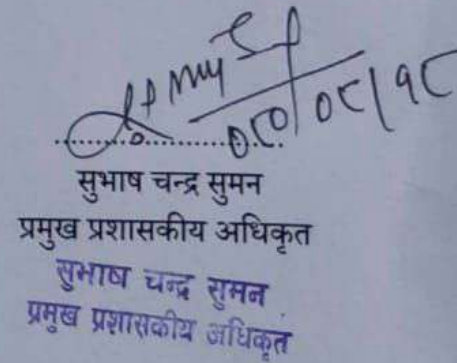 ०८०/०८/१८
सुभाष चन्द्र सुमन
प्रमुख प्रशासकीय अधिकृत
सुभाष चन्द्र सुमन
प्रमुख प्रशासकीय अधिकृत